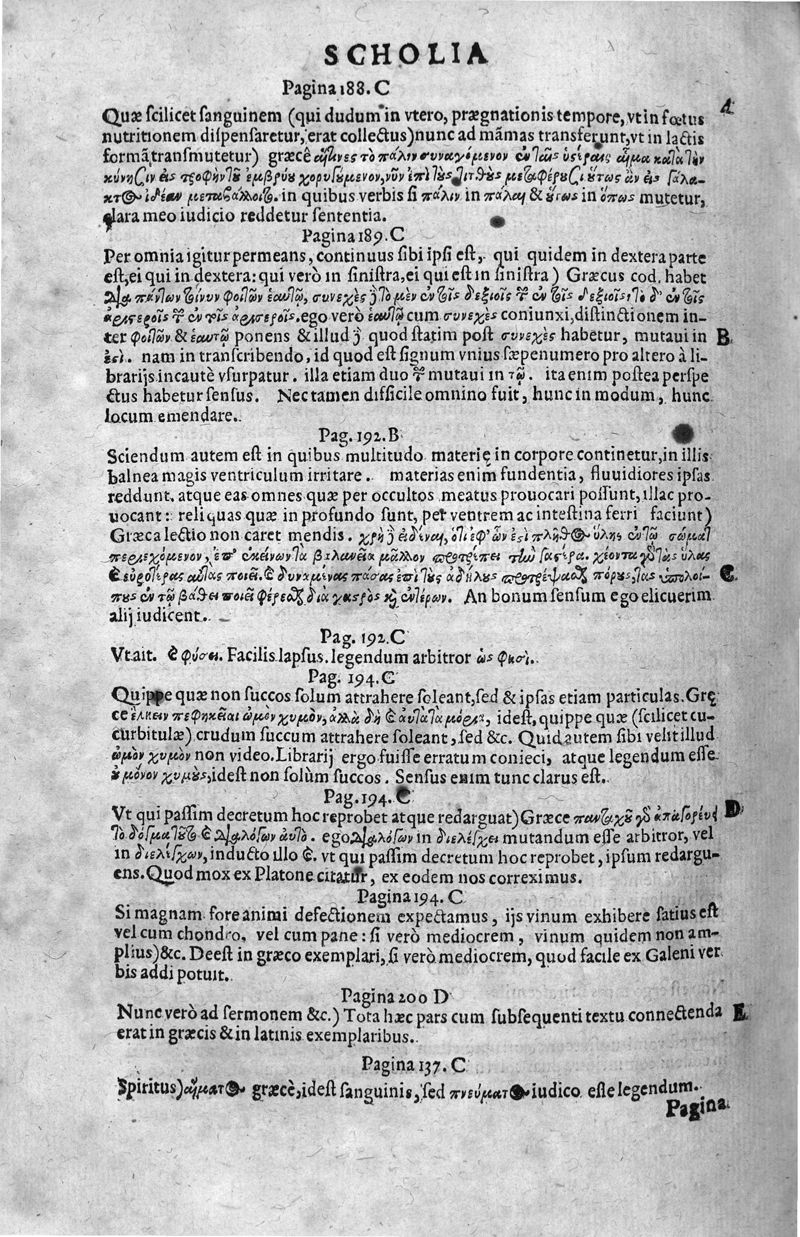 SCHOLIA
Pagina 188. C
A
Quæ scilicet sanguinem (qui dudum in vtero, prægnationis tempore, vt in fœtus
nutritionem dispensaretur, erat collectus) nunc ad mãmas transferunt, vt in lactis
formã transmutetur) græcê αἵτινες τὸ πάλιν συναγόμενον ἐν ταῖς ὑστέραις αἷμα κατὰ τὴν
κύησιν εἰς τροφὴν τοῦ ἐμβρύου χορηγούμενον, νῦν ἐπὶ τοὺς τιτθοὺς μεταφέρουσι οὕτως ἂν εἰς γάλα-
κτος ἰδέαν μεταβάλλοιτο. in quibus verbis si πάλιν in πάλαι & οὕτως in ὅπως mutetur,
clara meo iudicio reddetur sententia.
Pagina 189. C
Per omnia igitur permeans, continuus sibi ipsi est, qui quidem in dextera parte
est, ei qui in dextera: qui verò in sinistra, ei qui est in sinistra) Græcus cod. habet
διὰ πάντων τοίνυν φοιτῶν ἑαυτῷ, συνεχὲς δὲ τὸ μὲν ἐν τοῖς δεξιοῖς τοῦ ἐν τοῖς δεξιοῖς· τὸ δ' ἐν τοῖς
ἀριστεροῖς τοῦ ἐν τοῖς ἀριστεροῖς. ego verò ἑαυτῷ cum συνεχὲς coniunxi, distinctionem in-
ter φοιτῶν & ἑαυτῷ ponens & illud δὲ quod statim post συνεχὲς habetur, mutaui in B
ἐστὶ. nam in transcribendo, id quod est signum vnius sæpenumero pro altero à li-
brarijs incautè vsurpatur. illa etiam duo τοῦ mutaui in τῷ. ita enim postea perspe
ctus habetur sensus. Nec tamen difficile omnino fuit, hunc in modum, hunc
locum emendare.
Pag. 192. B
Sciendum autem est in quibus multitudo materię in corpore continetur, in illis
balnea magis ventriculum irritare. materias enim fundentia, fluuidiores ipsas
reddunt. atque eas omnes quæ per occultos meatus prouocari possunt, illac pro-
uocant: reliquas quæ in profundo sunt, per ventrem ac intestina ferri faciunt)
Græca lectio non caret mendis. χρὴ δὲ εἰδέναι, ὅτι ἐφ' ὧν ἐστὶ πλῆθος ὕλης ἐν τῷ σώματι
περιεχόμενον, ἐπ' ἐκείνων τὰ βαλανεῖα μᾶλλον προτρέπει τὴν γαστέρα. χέοντα γὰρ τὰς ὕλας
καὶ εὐροτέρας αὐτὰς ποιεῖ. καὶ δυναμένας πάσας ἐπὶ τοὺς ἀδήλους προτρέψασθαι πόρους, τὰς ὑπολοί- C.
πους ἐν τῷ βάθει ποιεῖ φέρεσθαι διὰ γαστρὸς καὶ ἐντέρων. An bonum sensum ego elicuerim
alij iudicent.
Pag. 192. C
Vt ait. καὶ φύσει. Facilis lapsus. legendum arbitror ὡς φησί.
Pag. 194. C
Quippe quæ non succos solum attrahere soleant, sed & ipsas etiam particulas. Grę
ce ἕλκειν πεφηκεῖαι ὠμὸν χυμὸν, ἀλλὰ δὴ καὶ αὐτὰ τὰ μόρια, idest, quippe quæ (scilicet cu-
curbitulæ) crudum succum attrahere soleant, sed &c. Quid autem sibi velit illud
ὠμὸν χυμὸν non video. Librarij ergo fuisse erratum conieci, atque legendum esse
οὐ μόνον χυμοὺς, idest non solùm succos. Sensus enim tunc clarus est.
Pag. 194. C
Vt qui passim decretum hoc reprobet atque redarguat) Græce πανταχοῦ γὰρ ἀπαγορεύει D
τὸ δόγμα τοῦτο καὶ διαλέγων αὐτὸ. ego διαλέγων in διελέγχει mutandum esse arbitror, vel
in διελέγχων, inducto illo καὶ. vt qui passim decretum hoc reprobet, ipsum redargu-
ens. Quod mox ex Platone citatur, ex eodem nos correximus.
Pagina 194. C
Si magnam fore animi defectionem expectamus, ijs vinum exhibere satius est
vel cum chondro, vel cum pane: si verò mediocrem, vinum quidem non am-
plius) &c. Deest in græco exemplari, si verò mediocrem, quod facile ex Galeni ver
bis addi potuit.
Pagina 200 D
Nunc verò ad sermonem &c.) Tota hæc pars cum subsequenti textu connectenda E
erat in græcis & in latinis exemplaribus.
Pagina 137. C
Spiritus) αἵματος græcè, idest sanguinis, sed πνεύματος iudico esse legendum.
Pagina